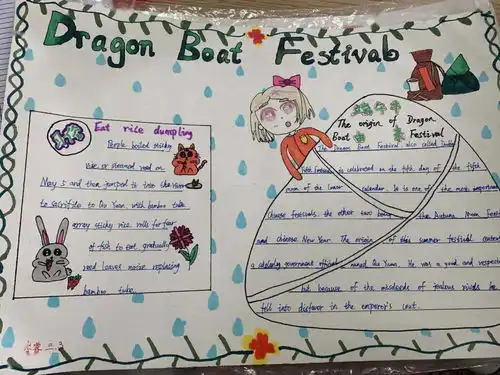 Dragon Boat Festival
Eat rice dumpling
People boiled sticky
rice or steamed
May 5 and then jumped to into the
to sacrifice to Qu Yuan with bamboo tube
sticky rice rolls for fear
of fish to eat, gradually
reed leaves replacing
bamboo tube.
The origin of Dragon
Boat Festival
The Dragon Boat Festival also called
Fifth Festival is celebrated on the fifth day of the fifth
moon of the lunar calendar. It is one of the most important
Chinese festivals, the other two being the Autumn Moon Festival
and Chinese New Year. The origin of this summer festival centers
a scholarly government official named Qu Yuan. He was a good and respected
but because of the misdeeds of jealous rivals he
fell into disfavor in the emperor's